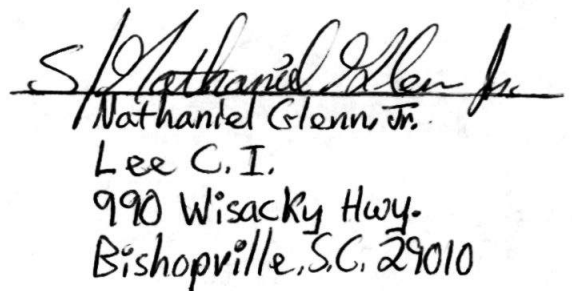 S/Nathaniel Glenn Jr.
Nathaniel Glenn, Jr.
Lee C.I.
990 Wisacky Hwy.
Bishopville, S.C. 29010